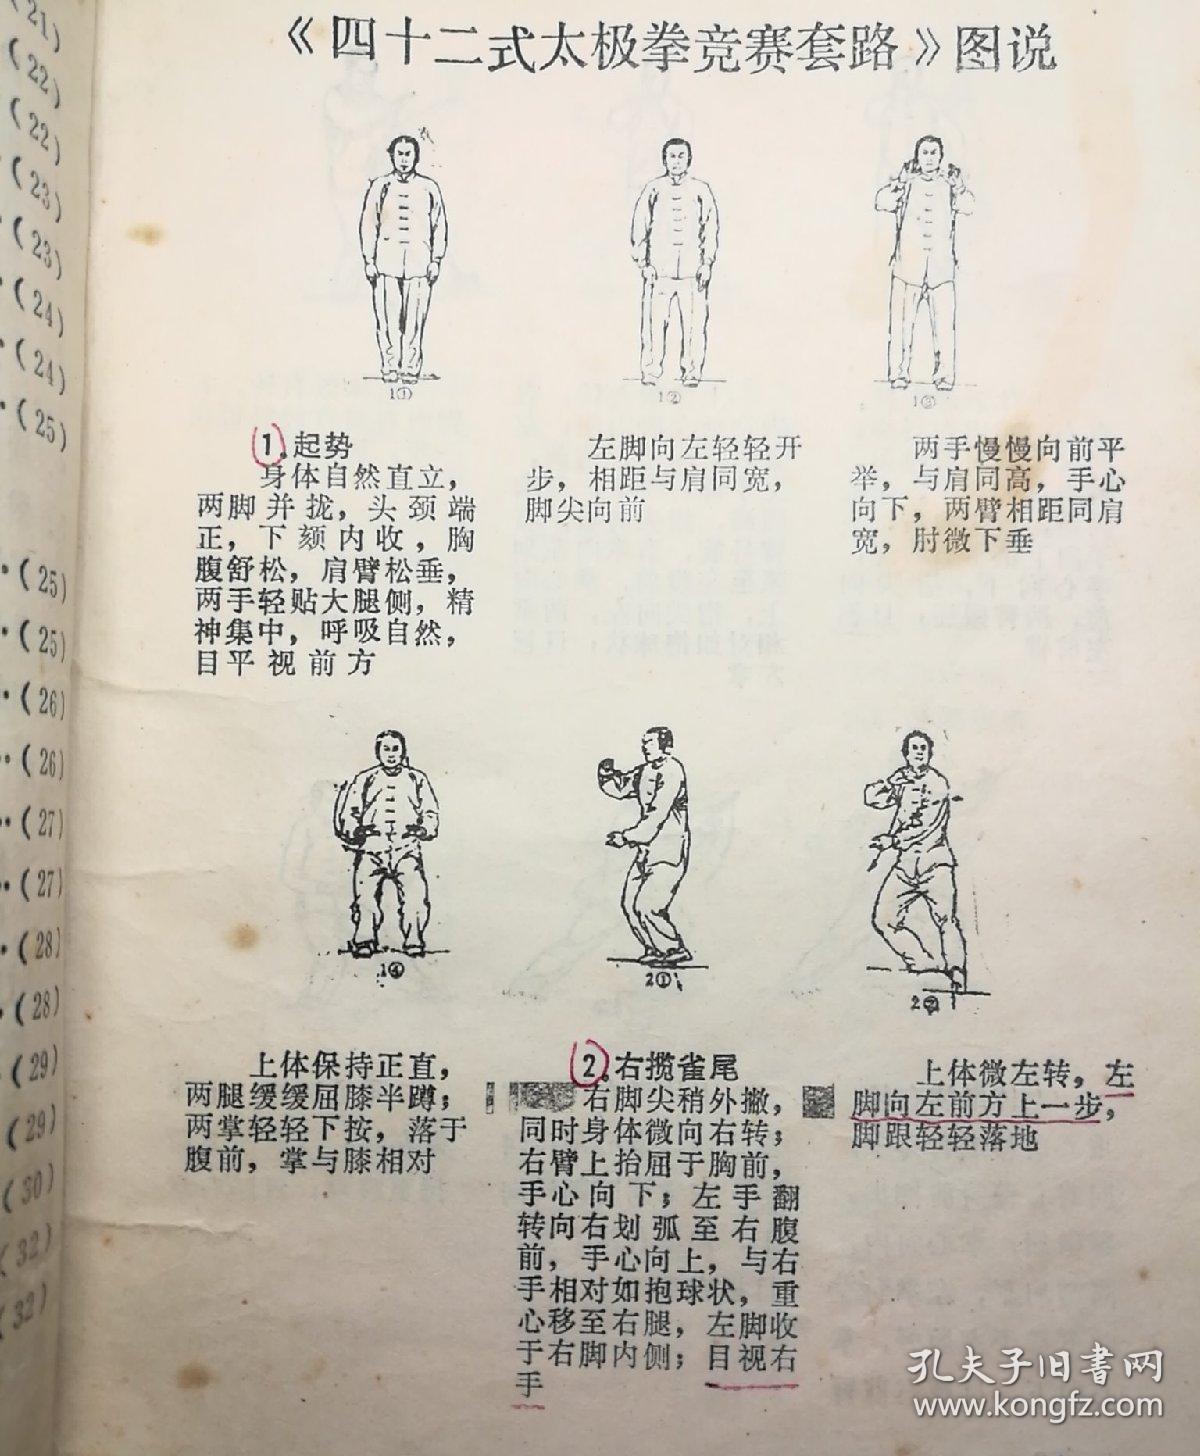 《四十二式太极拳竞赛套路》图说
1①
1②
1③
1.起势
身体自然直立，
两脚并拢，头颈端
正，下颏内收，胸
腹舒松，肩臂松垂，
两手轻贴大腿侧，精
神集中，呼吸自然，
目平视前方
左脚向左轻轻开
步，相距与肩同宽，
脚尖向前
两手慢慢向前平
举，与肩同高，手心
向下，两臂相距同肩
宽，肘微下垂
1④
2①
2②
上体保持正直，
两腿缓缓屈膝半蹲；
两掌轻轻下按，落于
腹前，掌与膝相对
2.右揽雀尾
右脚尖稍外撇，
同时身体微向右转；
右臂上抬屈于胸前，
手心向下；左手翻
转向右划弧至右腹
前，手心向上，与右
手相对如抱球状，重
心移至右腿，左脚收
于右脚内侧；目视右
手
上体微左转，左
脚向左前方上一步，
脚跟轻轻落地
(21)
(22)
(22)
(23)
(23)
(24)
(24)
(25)
(25)
(25)
(26)
(26)
(27)
(27)
(28)
(28)
(29)
(29)
(30)
(32)
(32)
孔夫子旧书网
www.kongfz.com